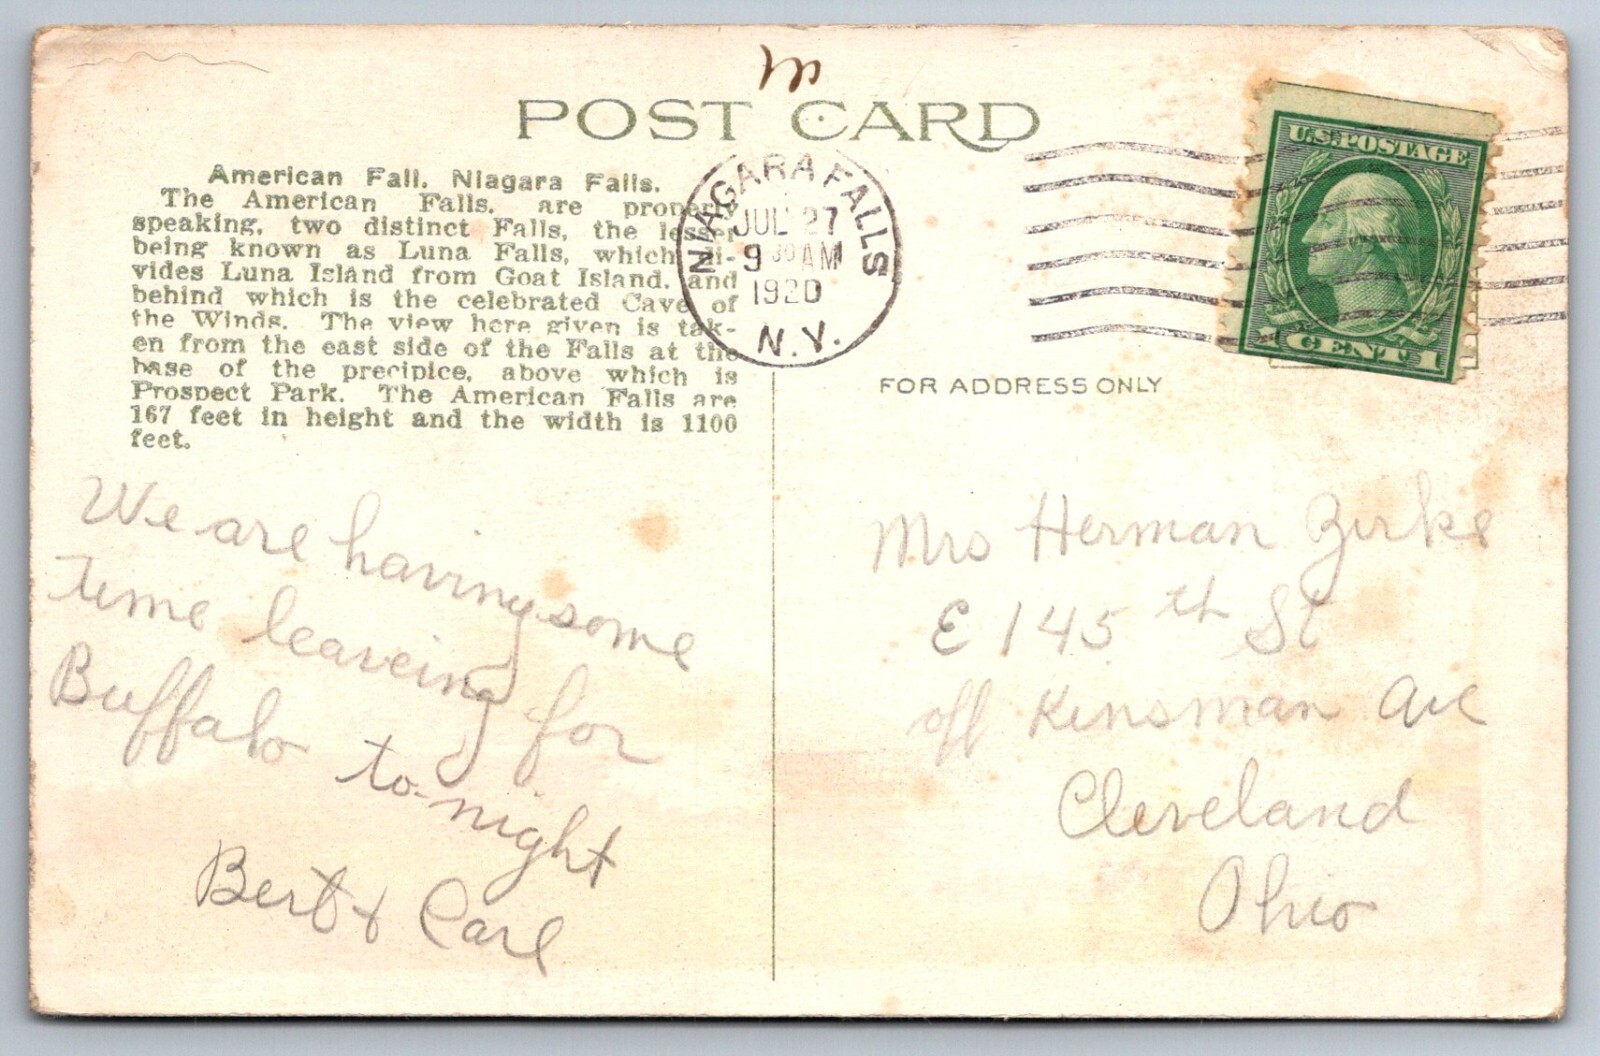 m
POST CARD
American Fall, Niagara Falls.
The American Falls, are properly
speaking, two distinct Falls, the lesser
being known as Luna Falls, which di-
vides Luna Island from Goat Island, and
behind which is the celebrated Cave of
the Winds. The view here given is tak-
en from the east side of the Falls at the
base of the precipice, above which is
Prospect Park. The American Falls are
167 feet in height and the width is 1100
feet.
NIAGARA FALLS
JUL 27
9 30 AM
1920
N.Y.
U.S. POSTAGE
1 CENT 1
FOR ADDRESS ONLY
We are having some
time leaveing for
Buffalo to-night
Bert & Carl
Mrs Herman Zirke
E 145th St
off Kinsman Ave
Cleveland
Ohio